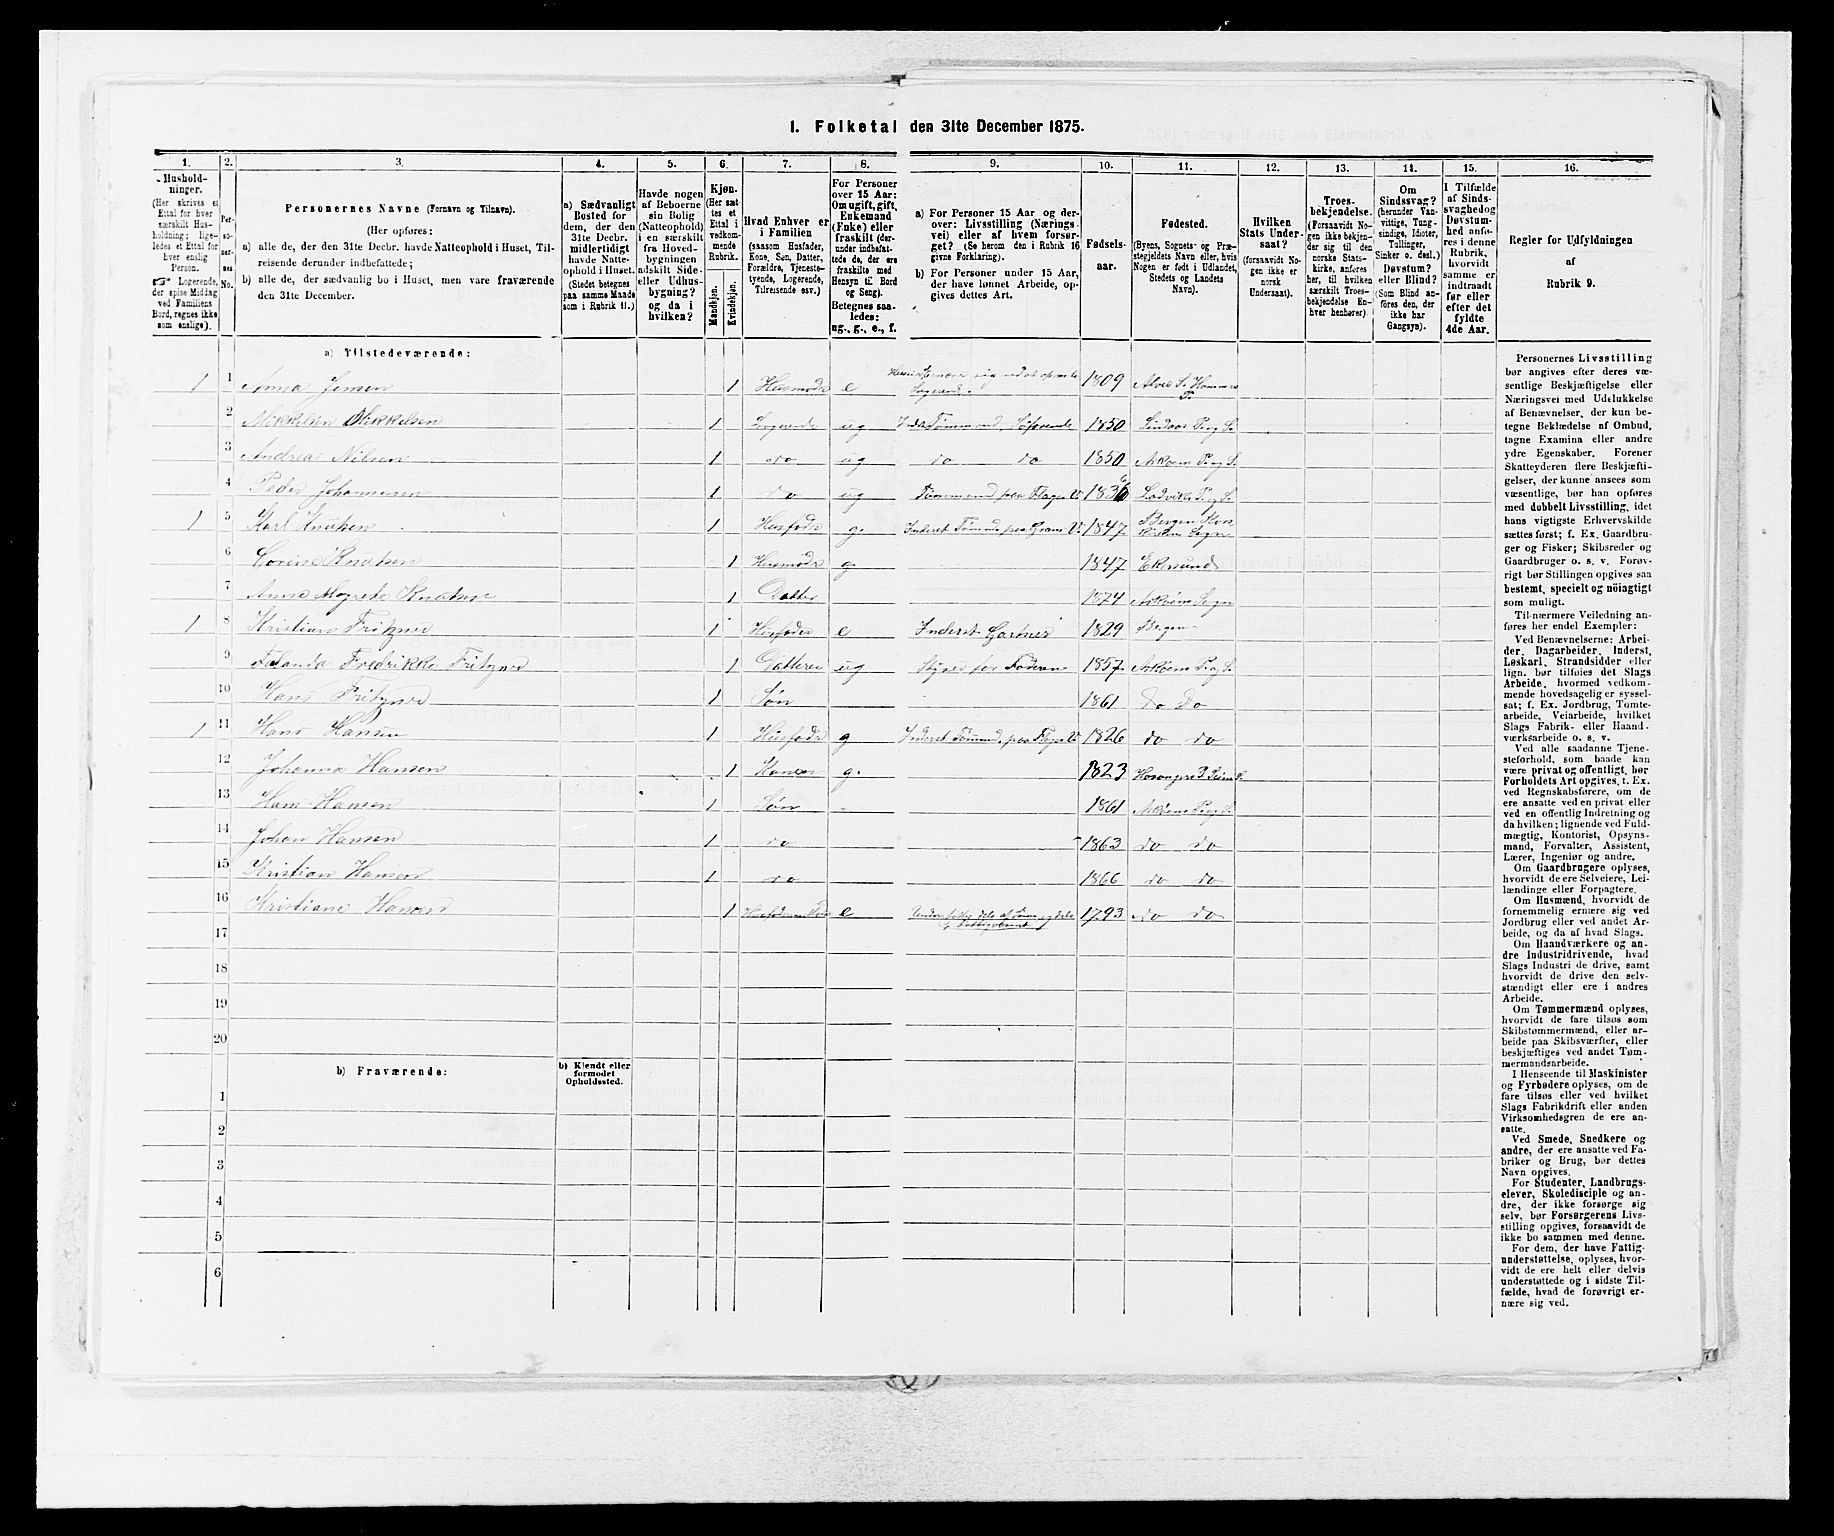 1. Folketal den 31te December 1875.
1.
2.
3.
4.
5.
6.
7.
8.
9.
10.
11.
12.
13.
14.
15.
16.
Husholdninger.
(Her skrives et Ettal for hver særskilt Husholdning; ligeledes et Ettal for hver enslig Person.
☞ Logerende, der spise Middag ved Familiens Bord, regnes ikke som enslige).
Personernes No.
Personernes Navne (Fornavn og Tilnavn).
(Her opføres:
a) alle de, der den 31te Decbr. havde Natteophold i Huset, Tilreisende derunder indbefattede;
b) alle de, der sædvanlig bo i Huset, men vare fraværende den 31te December.
a) Sædvanligt Bosted for dem, der den 31te Decbr. midlertidigt havde Natteophold i Huset. (Stedet betegnes paa samme Maade som i Rubrik 11.)
Havde nogen af Beboerne sin Bolig (Natteophold) i en særskilt fra Hovedbygningen adskilt Side- eller Udhusbygning? og da i hvilken?
Kjøn. (Her sættes et Ettal i vedkommende Rubrik.
Mandkjøn.
Kvindekjøn.
Hvad Enhver er i Familien
(saasom Husfader, Kone, Søn, Datter, Forældre, Tjenestetyende, Logerende, Tilreisende osv.)
For Personer over 15 Aar: Om ugift, gift, Enkemand (Enke) eller fraskilt (derunder indbefattede de, der ere fraskilte med Hensyn til Bord og Seng). Betegnes saaledes: ug., g., e., f.
a) For Personer 15 Aar og derover: Livsstilling (Næringsvei) eller af hvem forsørget? (Se herom den i Rubrik 16 givne Forklaring).
b) For Personer under 15 Aar, der have lønnet Arbeide, opgives dettes Art.
Fødselsaar.
Fødested.
(Byens, Sognets- og Præstegjeldets Navn eller, hvis Nogen er født i Udlandet, Stedets og Landets Navn).
Hvilken Stats Undersaat?
(forsaavidt Nogen ikke er norsk Undersaat).
Troesbekjendelse.
(Forsaavidt Nogen ikke bekjender sig til den norske Statskirke, anføres her, til hvilken særskilt Troesbekjendelse Enhver henhører).
Om Sindssvag? (herunder Vanvittige, Tungsindige, Idioter, Tullinger, Sinker o. desl.) Døvstum? eller Blind? (Som Blind anføres den, der ikke har Gangsyn).
I Tilfælde af Sindssvaghed og Døvstumhed anføres i denne Rubrik, hvorvidt samme er indtraadt før eller efter det fyldte 4de Aar.
Regler for Udfyldningen
af
Rubrik 9.
a) Tilstedeværende:
1 1 Anna Jensen 1 Husmodr e Logerende. 1809 Alvers S. Hammer P.
2 Mikkelsen Mikkelsen 1 Logerende ug Tømmmd, Søfarende 1850 Lindaas P. og S.
3 Andreas Nilsen 1 do ug do do 1850 Askøens P. og S.
4 Peder Johannesen 1 do ug Tømmmd paa 1836 P. og S.
1 5 Karl Knutsen 1 Husfadr g. Inderst Tømmd. paa 1847. Bergen Kors Kirkens Sogn
6 Knutsen 1 Husmodr g 1847 Ekersund
7 Anna Magrete Knutsen 1 Datter 1874 Askøens Sogn
1 8 Kristian Fritzner 1 Husfader e Inderst Gartner 1829 Bergen
9 Fredrikke Fritzner 1 Datteren ug Styrer for Faderen 1857. Askøens P. og S.
10 Hans Fritzner 1 Søn 1861 Do Do
1 11 Hans Hansen 1 Husfadr g Inderst Tømmd. paa 1826 do do
12 Johanna Hansen 1 Konen g. 1823 Hosanger P.
13 Hans Hansen 1 Søn 1861 Askøens P. og S.
14 Johan Hansen 1 do 1863 do do
15 Kristian Hansen 1 do 1866 do do
16 Kristiane Hansen 1 e dels af og dels af Fattigvæsenet 1793 do do
17
18
19
20
b) Fraværende:
b) Kjendt eller formodet Opholdssted.
1
2
3
4
5
6
Personernes Livsstilling
bør angives efter deres væ-
sentlige Beskjæftigelse eller
Næringsvei med Udelukkelse
af Benævnelser, der kun be-
tegne Beklædelse af Ombud,
tagne Examina eller andre
ydre Egenskaber. Forener
Skatteyderen flere Beskjæfti-
gelser, der kunne ansees som
væsentlige, bør han opføres
med dobbelt Livsstilling, idet
hans vigtigste Erhvervskilde
sættes først; f. Ex. Gaardbru-
ger og Fisker; Skibsreder og
Gaardbruger o. s. v. Forøv-
rigt bør Stillingen opgives saa
bestemt, specielt og nöiagtigt
som muligt.
Til nærmere Veiledning an-
føres her endel Exempler:
Ved Benævnelserne: Arbei-
der, Dagarbeider, Inderst,
Løskarl, Strandsidder eller
lign. bør tilføies det Slags
Arbeide, hvormed vedkom-
mende hovedsagelig er syssel-
sat; f. Ex. Jordbrug, Tomte-
arbeide, Veiarbeide, hvilket
Slags Fabrik- eller Haand-
værksarbeide o. s. v.
Ved alle saadanne Tjene-
steforhold, som baade kan
være privat og offentligt, bør
Forholdets Art opgives, t. Ex.
ved Regnskabsførere, om de
ere ansatte ved en privat eller
ved en offentlig Indretning og
da hvilken; lignende ved Fuld-
mægtig, Kontorist, Opsyns-
mand, Forvalter, Assistent,
Lærer, Ingeniør og andre.
Om Gaardbrugere oplyses,
hvorvidt de ere Selveiere, Lei-
lændinge eller Forpagtere.
Om Husmænd, hvorvidt de
fornemmelig ernære sig ved
Jordbrug eller ved andet Ar-
beide, og da af hvad Slags.
Om Haandværkere og an-
dre Industridrivende, hvad
Slags Industri de drive, samt
hvorvidt de drive den selv-
stændigt eller ere i andres
Arbeide.
Om Tømmermænd oplyses,
hvorvidt de fare tilsøs som
Skibstømmermænd, eller ar-
beide paa Skibsværfter, eller
beskjæftiges ved andet Tøm-
mermandsarbeide.
I Henseende til Maskinister
og Fyrbødere oplyses, om de
fare tilsøs eller ved hvilket
Slags Fabrikdrift eller anden
Virksomhedsgren de ere an-
satte.
Ved Smede, Snedkere og
andre, der ere ansatte ved Fa-
briker og Brug, bør dettes
Navn opgives.
For Studenter, Landbrugs-
elever, Skoledisciple og an-
dre, der ikke forsørge sig
selv, bør Forsørgerens Livs-
stilling opgives, forsaavidt de
ikke bo sammen med denne.
For dem, der have Fattig-
understøttelse, oplyses, hvor-
vidt de ere helt eller delvis
understøttede og i sidste Til-
fælde, hvad de forøvrigt er-
nære sig ved.